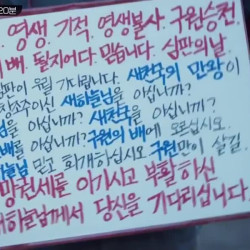 영생. 기적. 영생불사. 구원승천.
배. 될지어다. 믿습니다. 심판의날.
심판이 우릴 기다립니다. 새천국의 만왕이
창조주이신 새하늘님을 아십니까?
님을 아십니까? 새천국을 아십니까?
배를 아십니까? 구원의 배에 오르십시오.
늘님 믿고 회개하십시오. 구원만이 살길.
망권세를 이기시고 부활하신
새하늘님께서 당신을 기다리십니다.